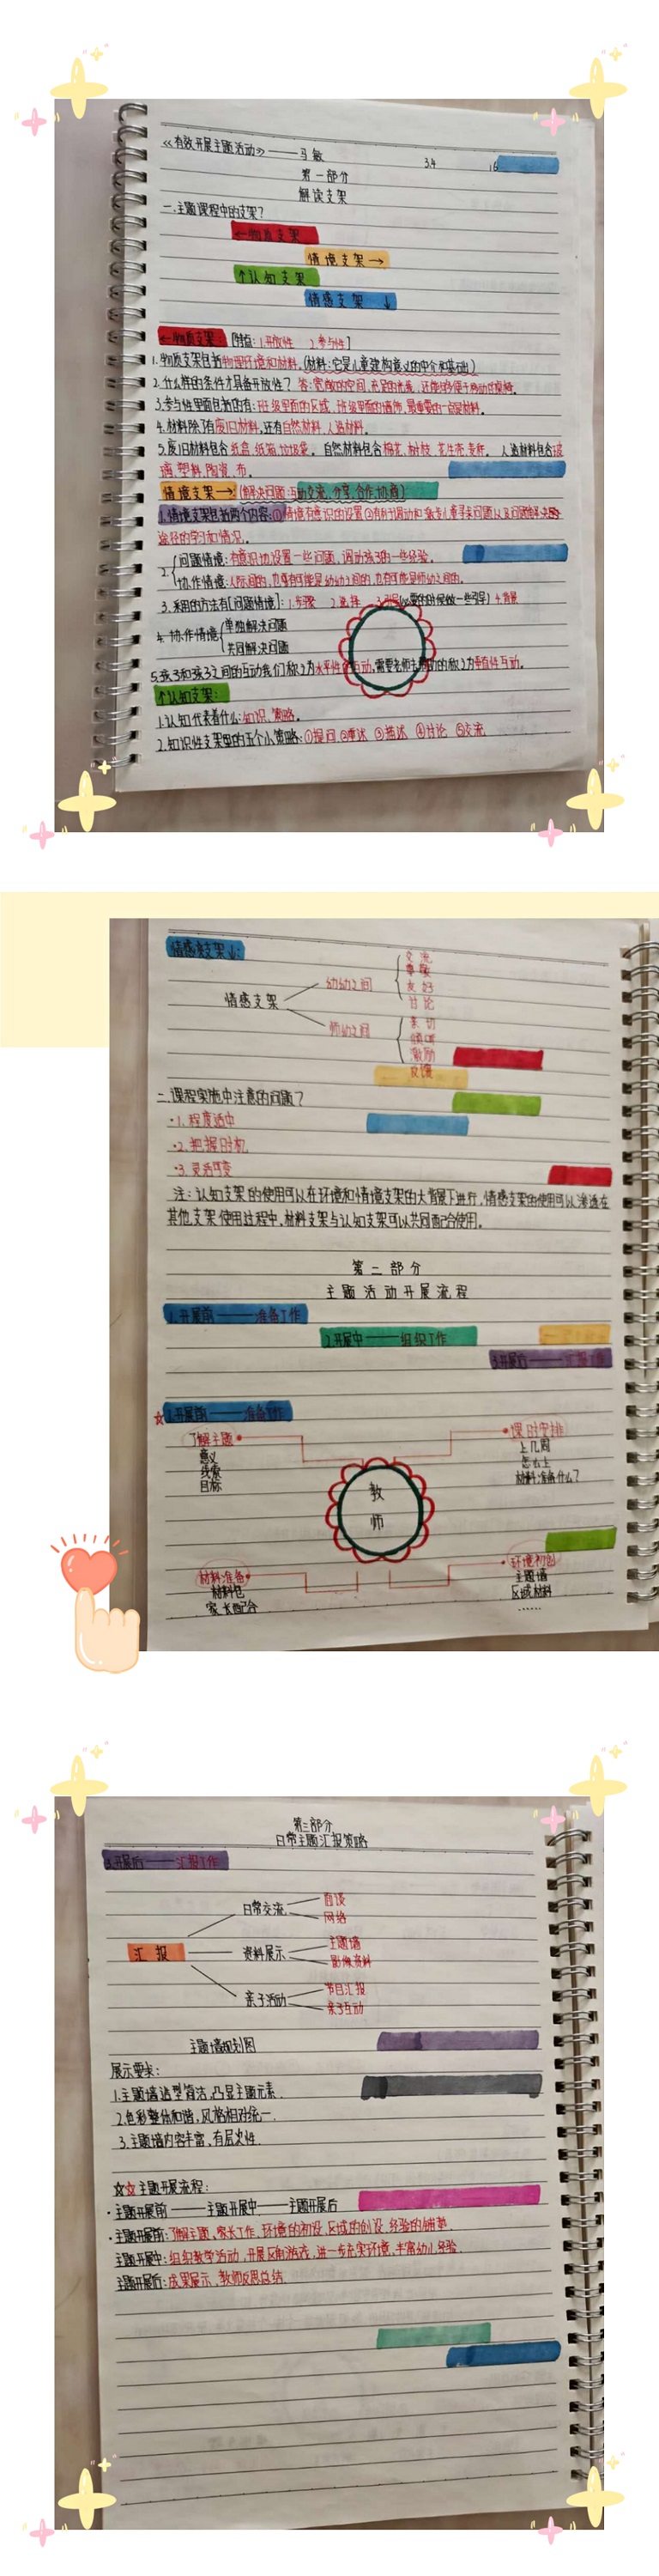 《有效开展主题活动》——马敏 3.4 16
第一部分
解读支架
一.主题课程中的支架?
←物质支架
情境支架→
↑认知支架
情感支架↓
←物质支架: [特点: 1.开放性 2.参与性]
1.物质支架包括物理环境和材料。(材料:它是儿童建构意义的中介和基础)
2.什么样的条件才具备开放性? 答:宽敞的空间,充足的光线,还能够便于移动的桌椅。
3.参与性里面包括的有:班级里面的区域,班级里面的墙饰,最重要的一点是材料。
4.材料除了有废旧材料,还有自然材料,人造材料。
5.废旧材料包含纸盒,纸箱,垃圾袋。自然材料包含棉花、树枝、花生壳、麦秆。人造材料包含玻
璃,塑料,陶瓷,布。
情境支架→:(解决问题:互动交流,分享,合作,协商)
1.情境支架包括两个内容:①情境有意识的设置②有利于调动和激发儿童寻求问题以及问题解决
途径的学习和情况。
2.{问题情境:有意识地设置一些问题,调动孩子的一些经验。
协作情境:人际间的,也有可能是幼幼之间的,也有可能是师幼之间的。
3.采用的方法有[问题情境]:1.步骤 2.选择 3.引导(必要的时候做一些引导) 4.背景
4.协作情境{单独解决问题
共同解决问题
5.孩子和孩子之间的互动我们称之为水平性互动,需要老师主导的的称之为垂直性互动。
↑认知支架:
1.认知代表着什么:知识、策略。
2.知识性支架里的五个小策略:①提问 ②重述 ③描述 ④讨论 ⑤交流
情感支架↓:
情感支架
幼幼之间
交流
尊敬
友好
讨论
师幼之间
亲切
倾听
激励
反馈
二.课程实施中注意的问题?
·1.程度适中
·2.把握时机
·3.灵活可变
注:认知支架的使用可以在环境和情境支架的大背景下进行,情感支架的使用可以渗透在
其他支架使用过程中,材料支架与认知支架可以共同配合使用。
第二部分
主题活动开展流程
1.开展前——准备工作
2.开展中——组织工作
3.开展后——汇报工作
☆1.开展前——准备工作
了解主题
意义
线索
目标
课时安排
上几周
怎么上
材料准备什么?
教师
材料准备
材料包
家长配合
环境初创
主题墙
区域材料
……
第三部分
日常主题汇报策略
3.开展后——汇报工作
汇报
日常交流
面谈
网络
资料展示
主题墙
影像资料
亲子活动
节目汇报
亲子互动
主题墙规划图
展示要求:
1.主题墙造型简洁,凸显主题元素.
2.色彩整体和谐,风格相对统一.
3.主题墙内容丰富,有层次性.
☆☆主题开展流程:
·主题开展前——主题开展中——主题开展后
·主题开展前:了解主题、家长工作,环境的初设,区域的创设,经验的铺垫.
主题开展中:组织教学活动,开展区角游戏,进一步充实环境,丰富幼儿经验.
主题开展后:成果展示,教师反思总结.